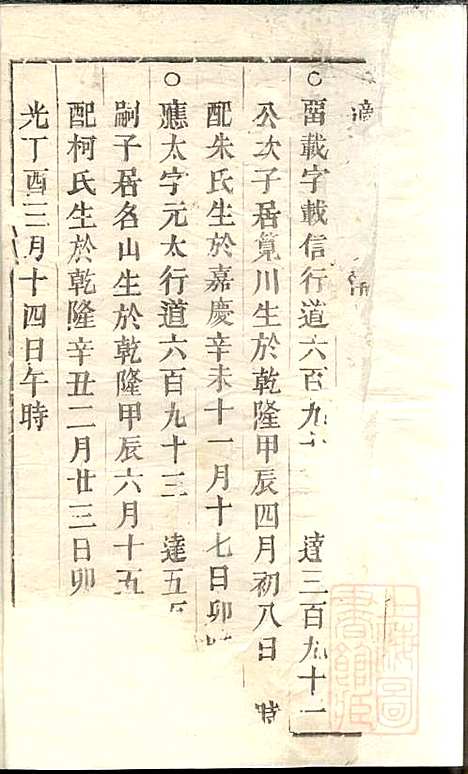 ○畱載字載信行道六百九 達三百九十一
公次子居筧川生於乾隆甲辰四月初八日 時
配朱氏生於嘉慶辛未十一月十七日卯
○應太字元太行道六百九十三 達五
嗣子居名山生於乾隆甲辰六月十五
配柯氏生於乾隆辛丑二月廿三日卯
光丁酉三月十四日午時
上海圖書館藏